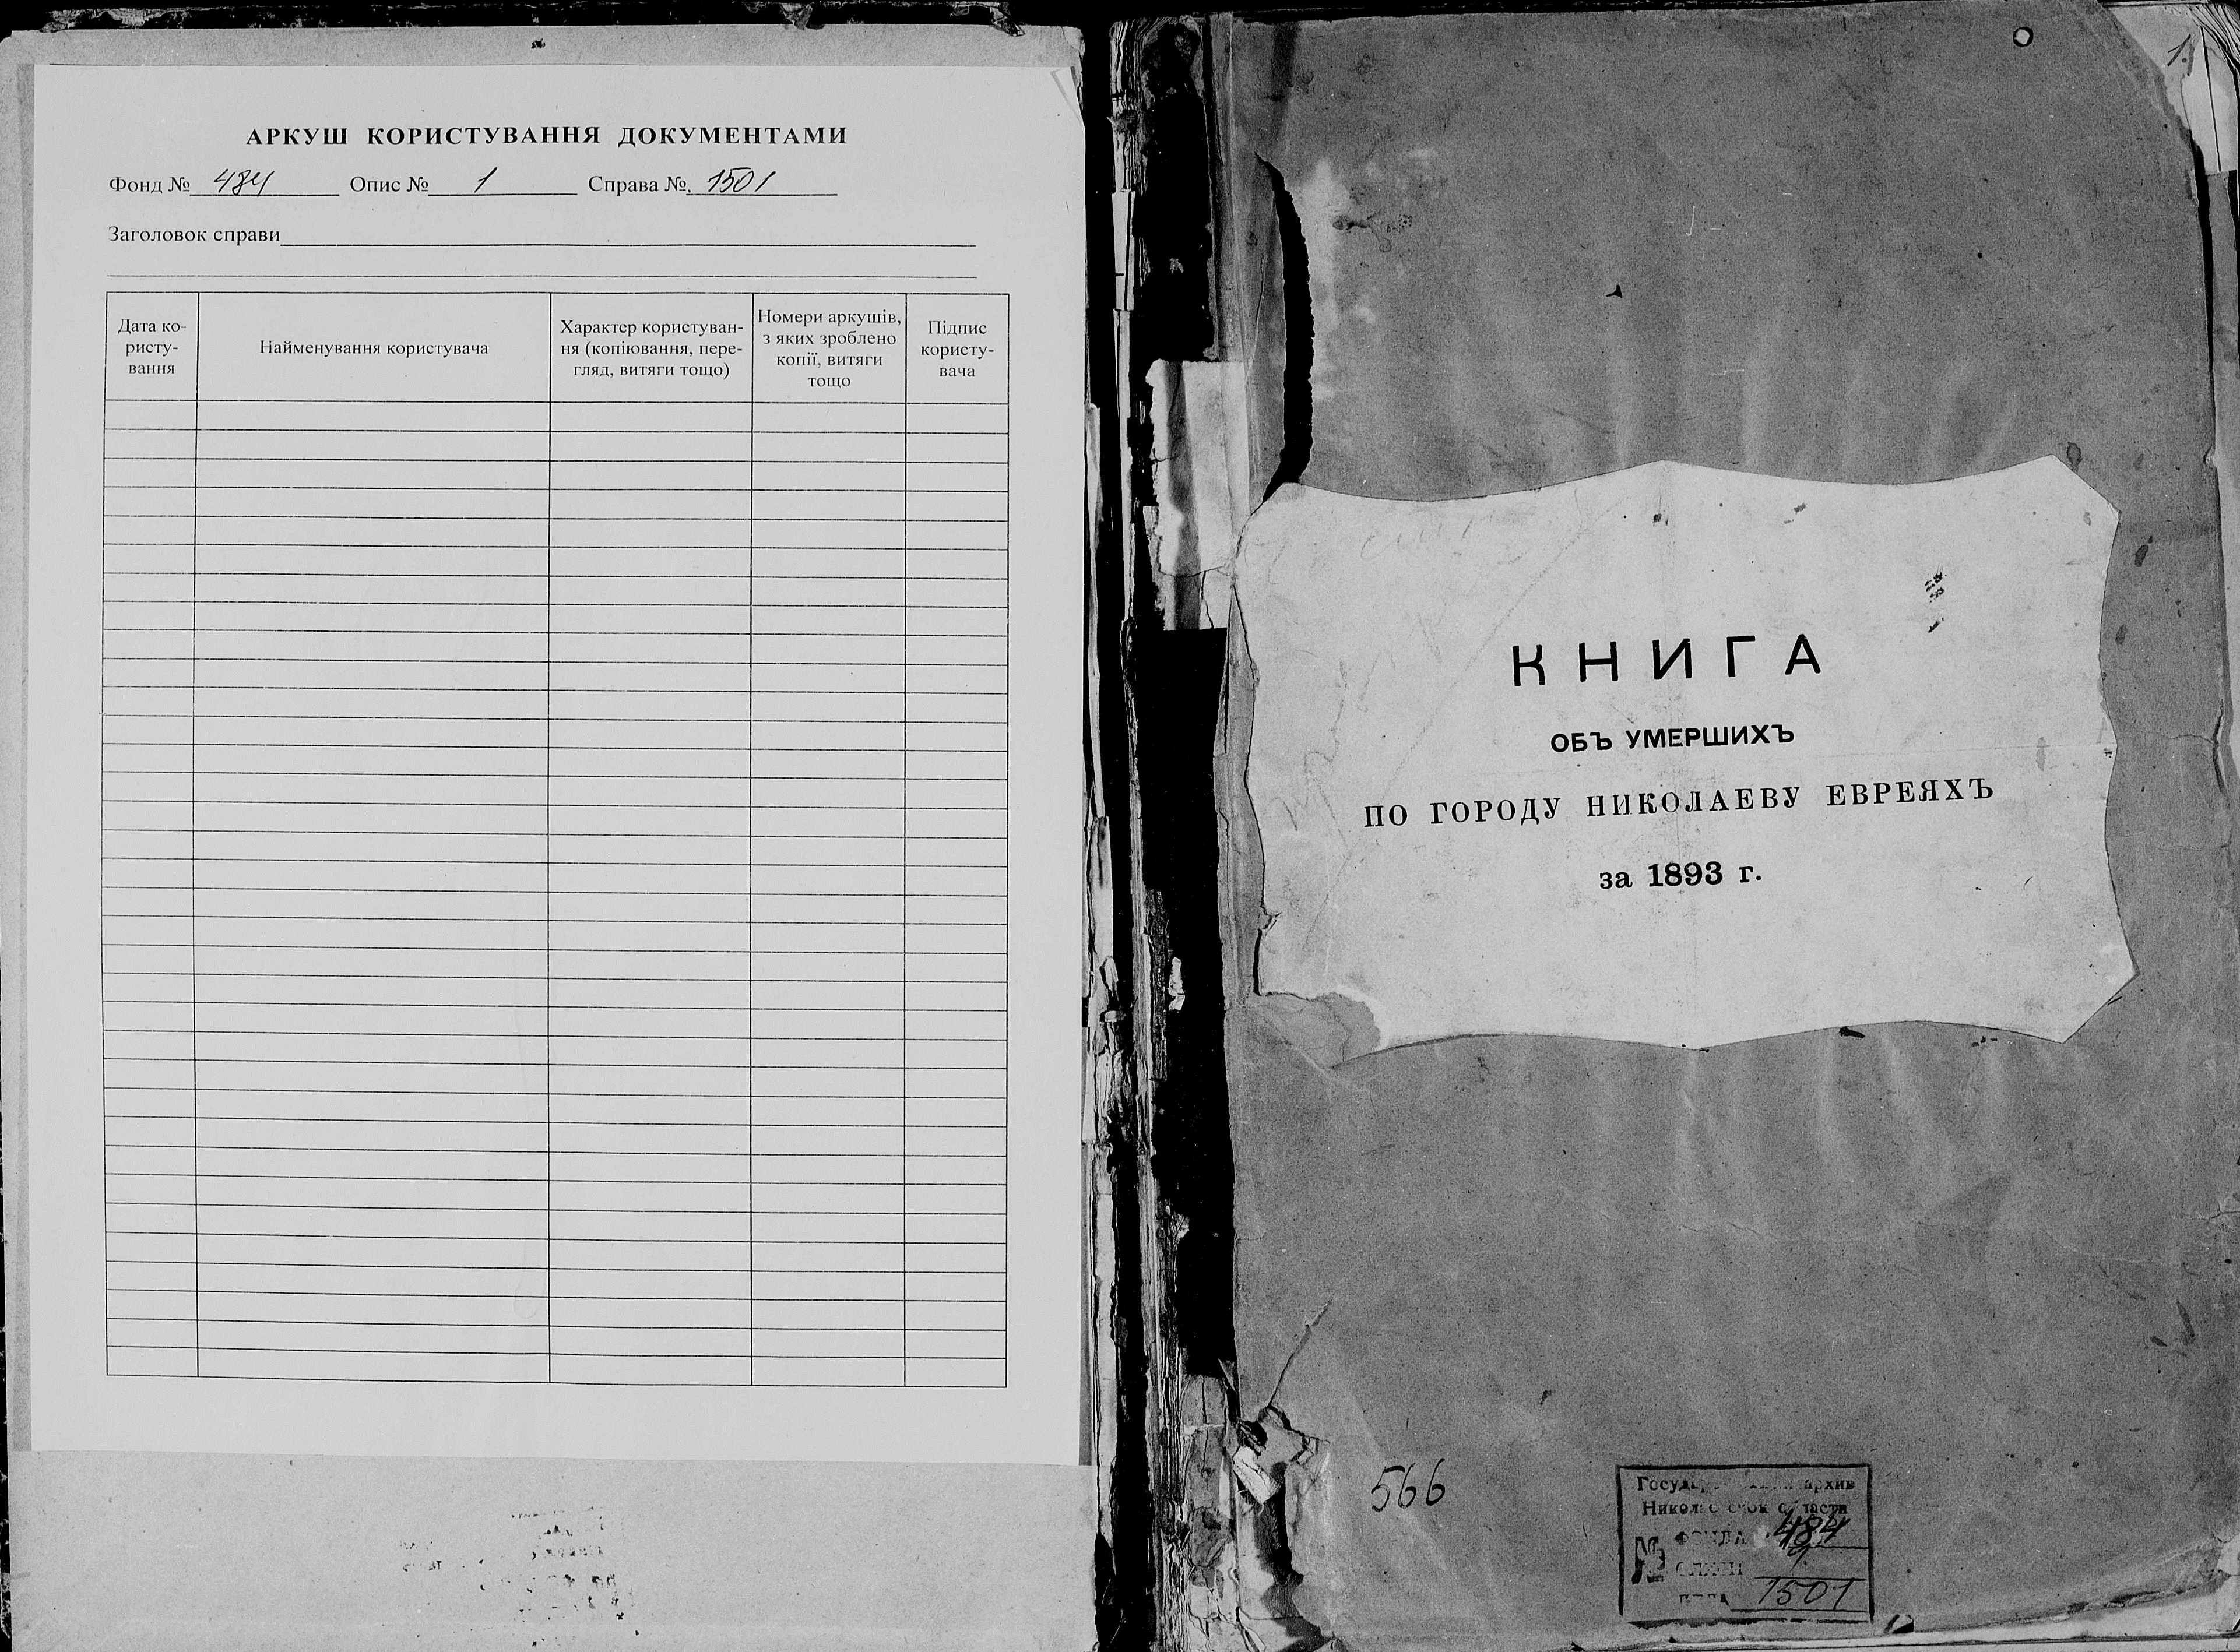 АРКУШ КОРИСТУВАННЯ ДОКУМЕНТАМИ
Фонд № 484 Опис № 1 Справа № 1501
Заголовок справи
Дата ко-
ристу-
вання
Найменування користувача
Характер користуван-
ня (копіювання, пере-
гляд, витяги тощо)
Номери аркушів,
з яких зроблено
копії, витяги
тощо
Підпис
користу-
вача
1.
КНИГА
ОБЪ УМЕРШИХЪ
ПО ГОРОДУ НИКОЛАЕВУ ЕВРЕЯХЪ
за 1893 г.
566
архив
области
№ ФОНДА 484
ОПИСИ 1
1501